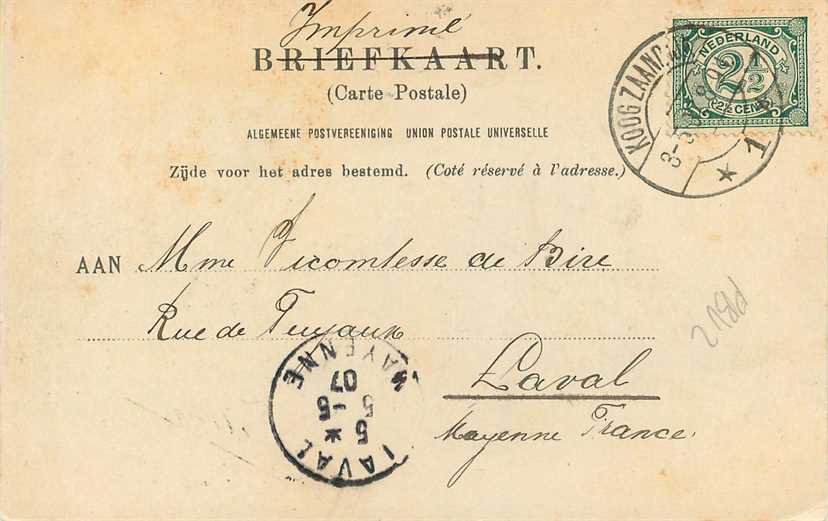 Imprimé
BRIEFKAART.
(Carte Postale)
ALGEMEENE POSTVEREENIGING UNION POSTALE UNIVERSELLE
Zijde voor het adres bestemd. (Coté réservé à l'adresse.)
NEDERLAND
2½
2½ CENT
KOOG ZAAND
1
AAN Mme Vicomtesse de Bire
Rue de
Laval
Mayenne France.
LAVAL
MAYENNE
5 * 
5 -5
07